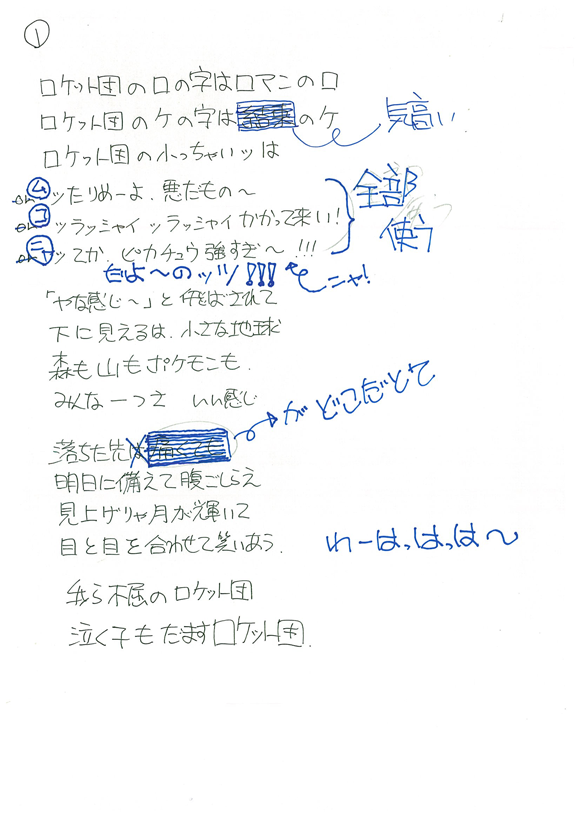 ①
ロケット団のロの字はロマンのロ
ロケット団のケの字は のケ
気高い
ロケット団の小っちゃいッは
ム ッたりめーよ、悪だもの〜
コ ッラッシャイ ッラッシャイ かかって来い!
ニャ ッてか、ピカチュウ強すぎ〜!!!
全部
使う
だよ〜のッツ!!!
ニャ!
「やな感じ〜」と飛ばされて
下に見えるは、小さな地球
森も山もポケモンも、
みんな一つさ いい感じ
落ちた先は
がどこだとて
明日に備えて腹ごしらえ
見上げりゃ月が輝いて
目と目を合わせて笑いあう、
わーはっはっは〜
我ら不屈のロケット団
泣く子もだますロケット団、